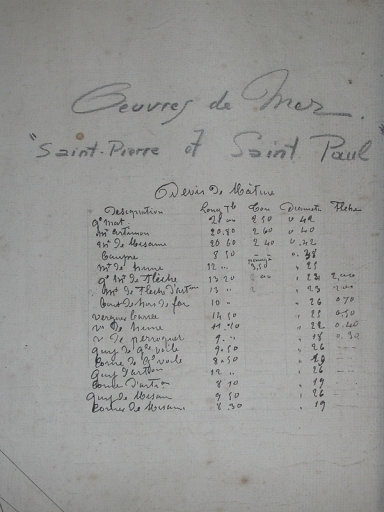 Oeuvres de Mer
"Saint-Pierre et Saint Paul
Devis de Mâture
Designation Long Ton Diametre Flèche
gd mat 21 00 2 50 0 42
mt artimon 20.80 2 60 0 40
mt de Misaine 20 60 2 40 0.42
Beaupré 8 50 0. 38
mt de hune 12 " 3,50 " 25
gd mt de Flèche 13 20 " 23
mt de Flèche d'artimon 13 " " 23
bout de hors de foc 10 " " 26 0 70
vergue barrée 14 50 " 25 0.50
v. de hune 22 0.40
v. de perroquet 9. " " 18 0.30
guy de gde voile 9.50 " 26
Corne de gd voile 8.50
guy d'artimon 12 " " 26
Corne d'artimon 8 10 " 19
guy de Misaine 9 50 " 26
Corne de Misaine 8.30 " 19